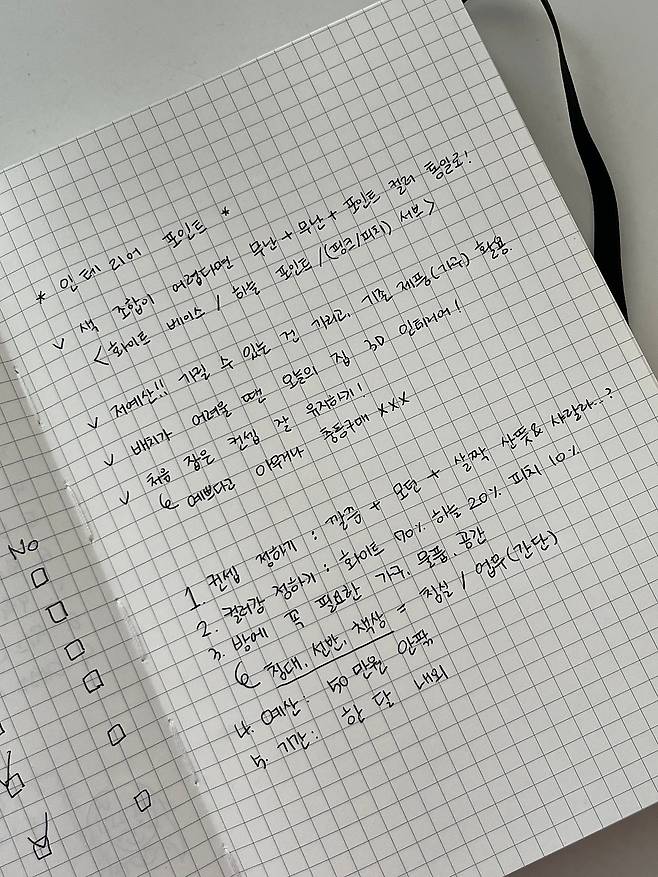 * 인테리어 포인트 *
v 색 조합이 어렵다면 무난+무난+포인트 컬러 통일로!
<화이트 베이스 / 하늘 포인트 /(핑크/피치) 서브>
v 저예산!! 가릴 수 있는 건 가리고, 기존 제품(가구) 활용.
v 배치가 어려울 땐 오늘의 집 3D 인테리어!
v 처음 잡은 컨셉 잘 유지하기!
예쁘다고 아무거나 충동구매 xxx
No
1. 컨셉 정하기 : 깔끔 + 모던 + 살짝 산뜻& 샤랄라..?
2. 컬러감 정하기 : 화이트 70% 하늘 20% 피치 10%
3. 방에 꼭 필요한 가구. 물품. 공간
침대, 선반, 책상 = 침실 / 업무(간단)
4. 예산 : 50만원 안팎
5. 기간 : 한 달 내외